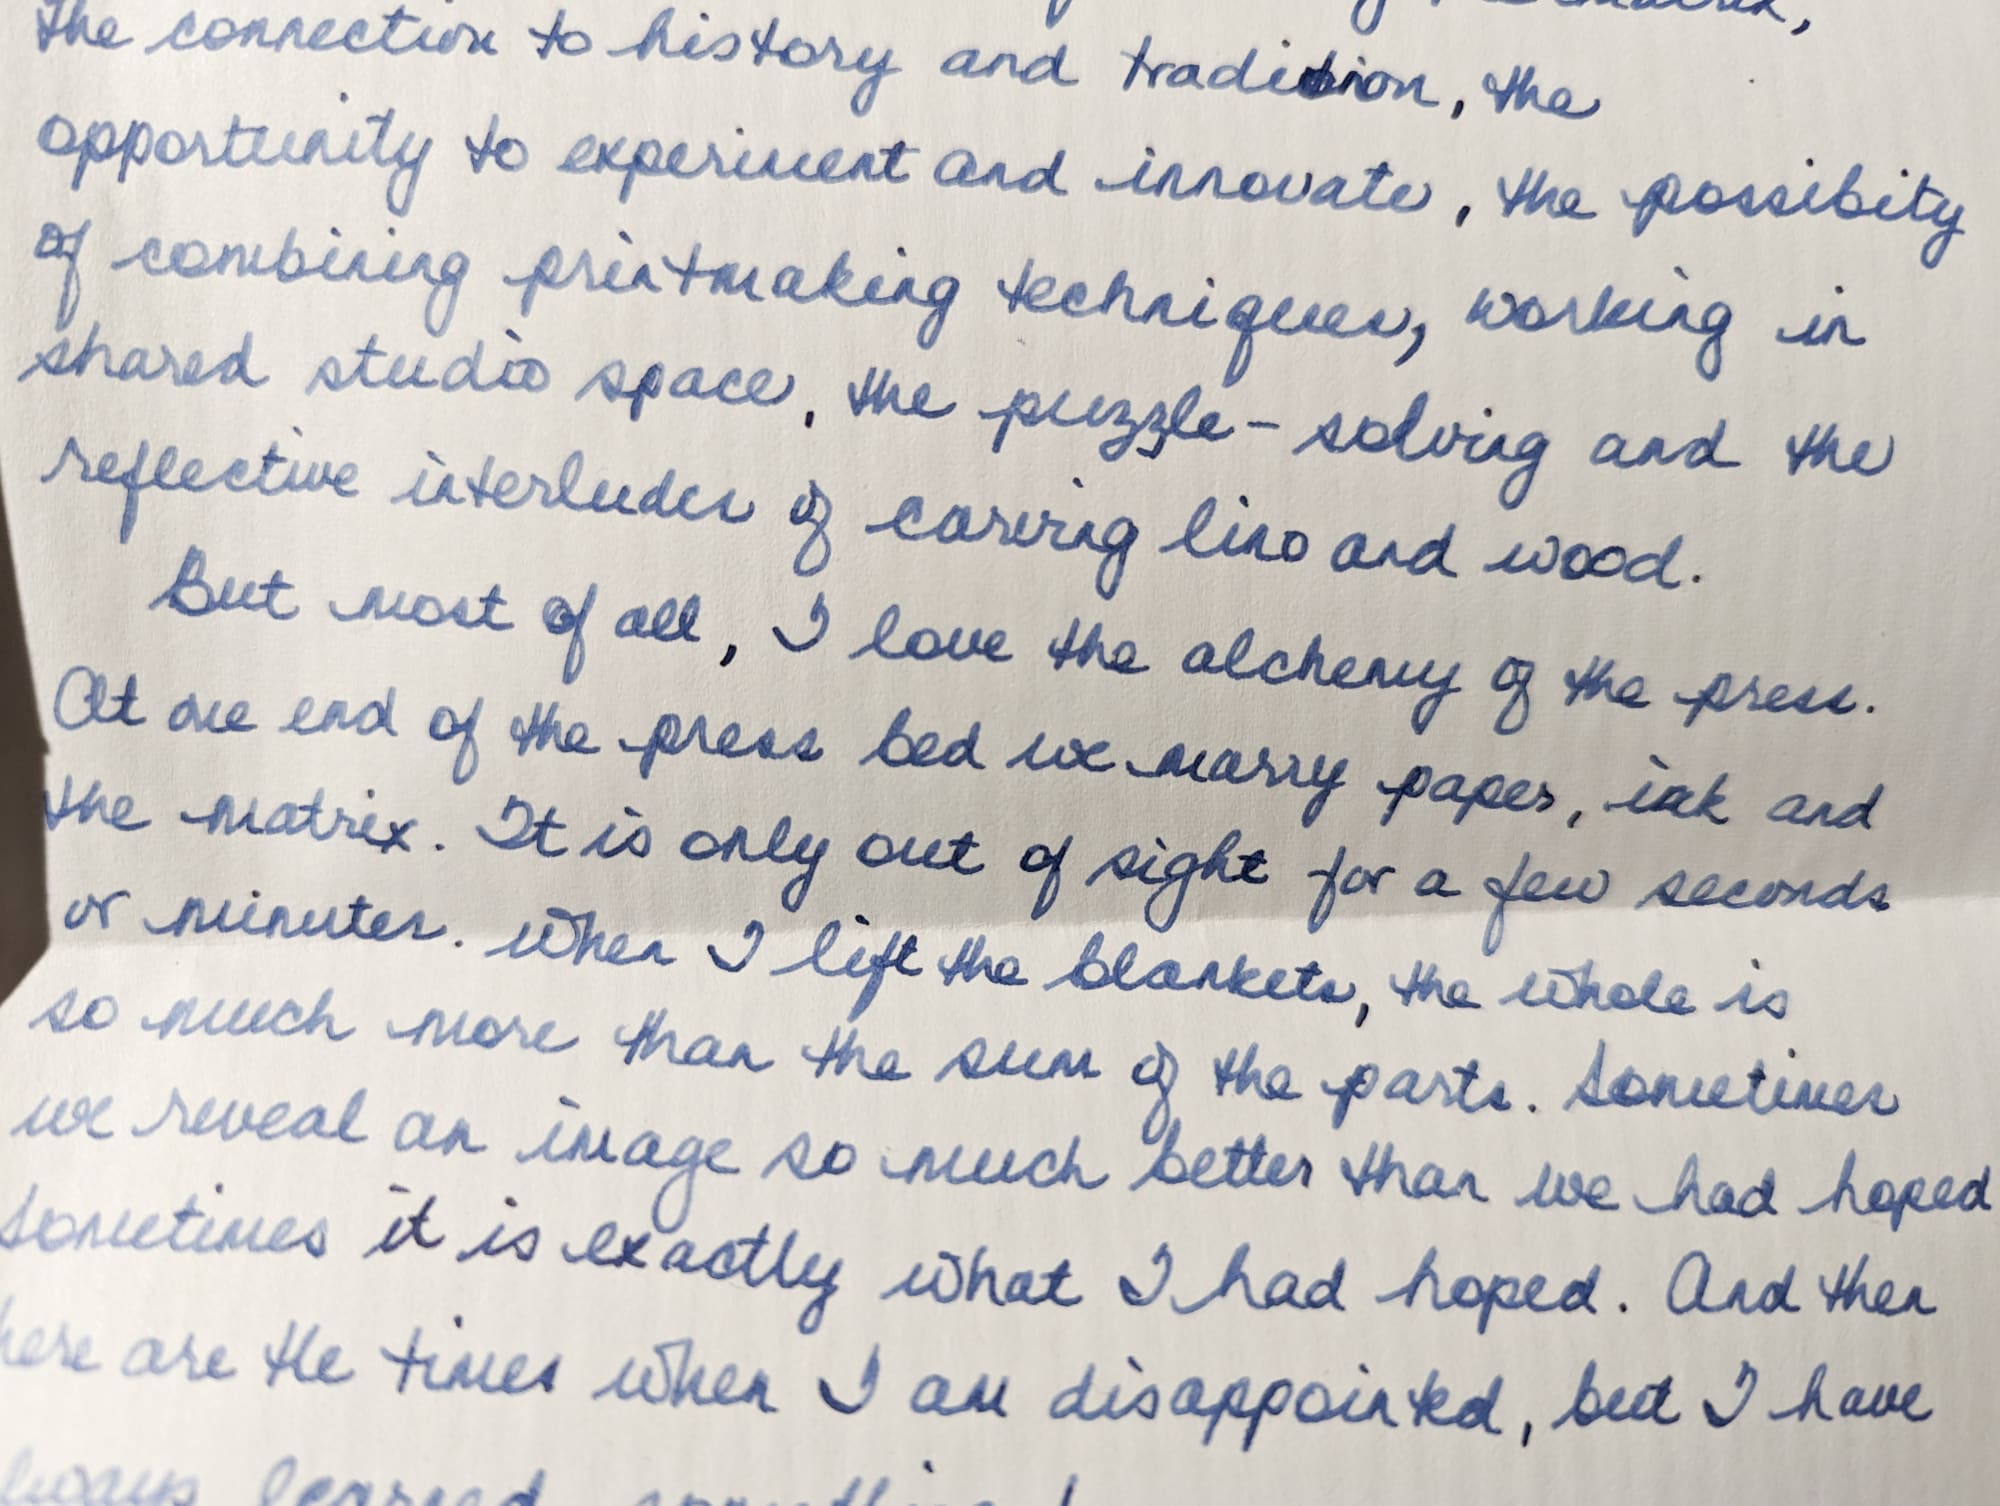 the connection to history and tradition, the
opportunity to experiment and innovate, the possibity
of combining printmaking techniques, working in
shared studio space, the puzzle-solving and the
reflective interludes of carving lino and wood.
But most of all, I love the alchemy of the press.
At one end of the press bed we marry paper, ink and
the matrix. It is only out of sight for a few seconds
or minutes. When I lift the blankets, the whole is
so much more than the sum of the parts. Sometimes
we reveal an image so much better than we had hoped
Sometimes it is exactly what I had hoped. And then
here are the times when I am disappointed, but I have
learned something!